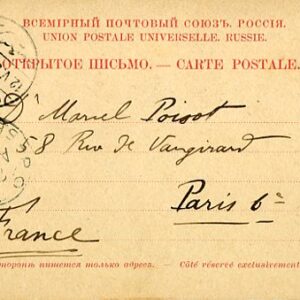 ВСЕМІРНЫЙ ПОЧТОВЫЙ СОЮЗЪ. РОССІЯ.
UNION POSTALE UNIVERSELLE. RUSSIE.
ОТКРЫТОЕ ПИСЬМО. — CARTE POSTALE.
Marcel
58 Rue de Vaugirard
Paris 6e
France
сторонѣ пишется только адресъ. — Côté réservé exclusivement